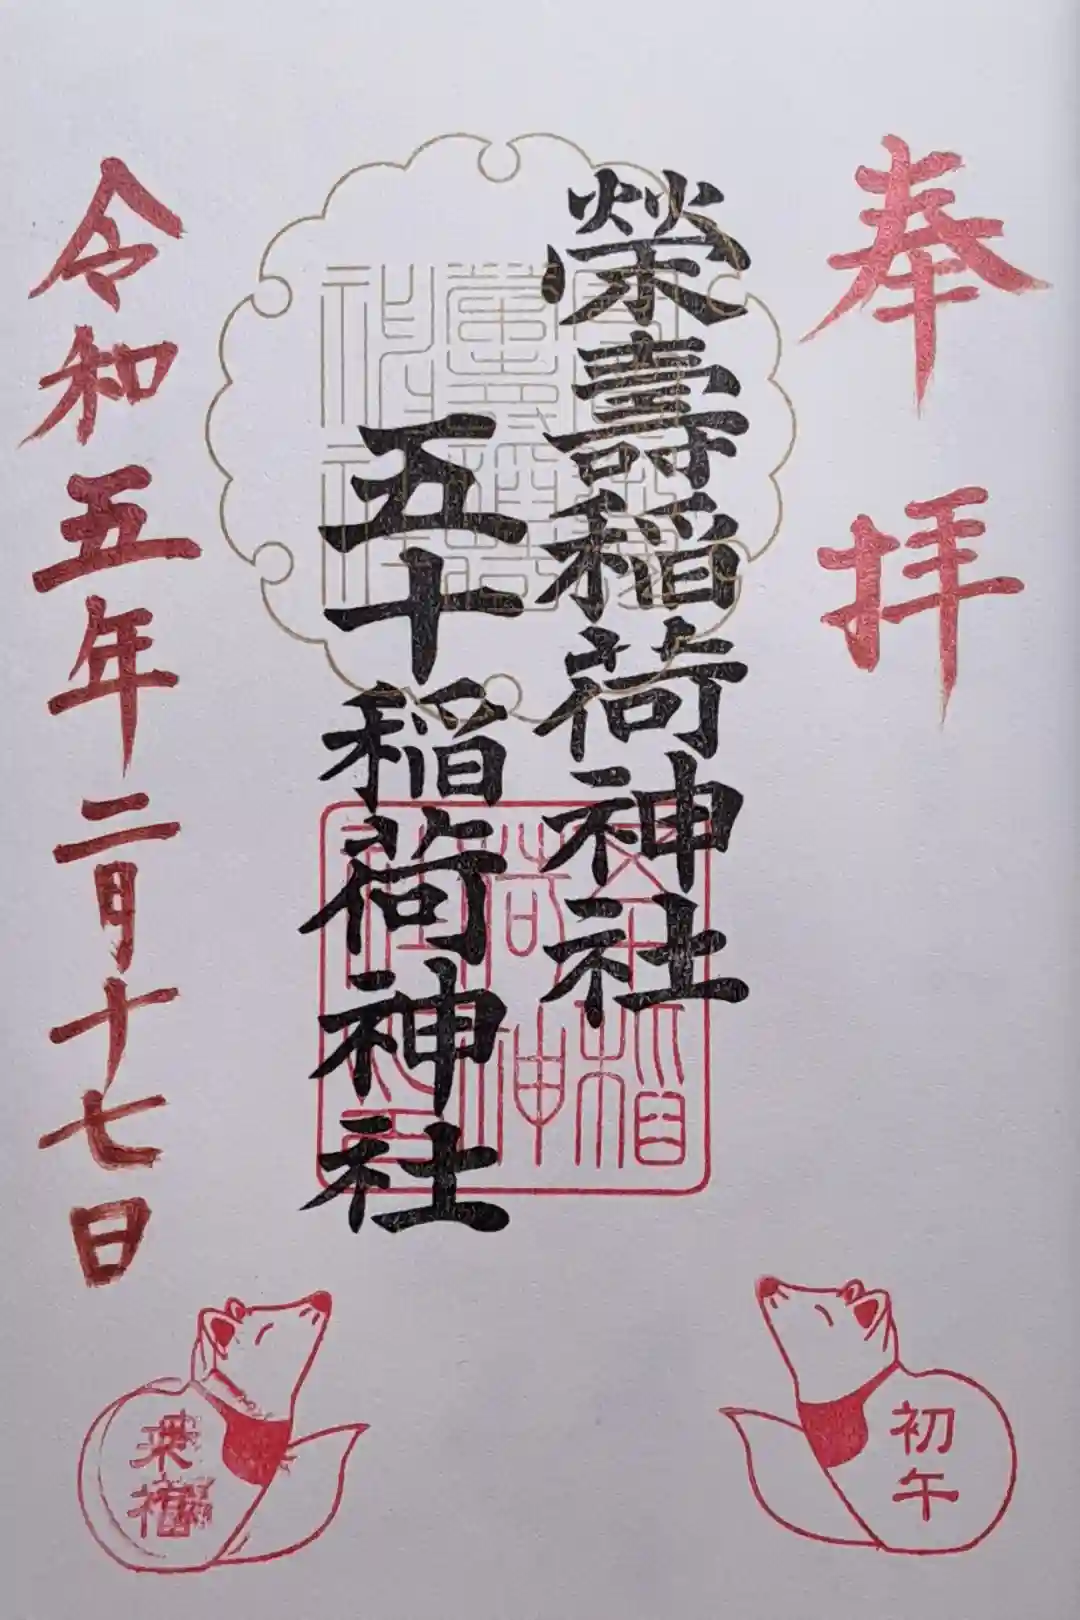 奉拝
榮壽稲荷神社
五十稲荷神社
令和五年二月十七日
初午
来福